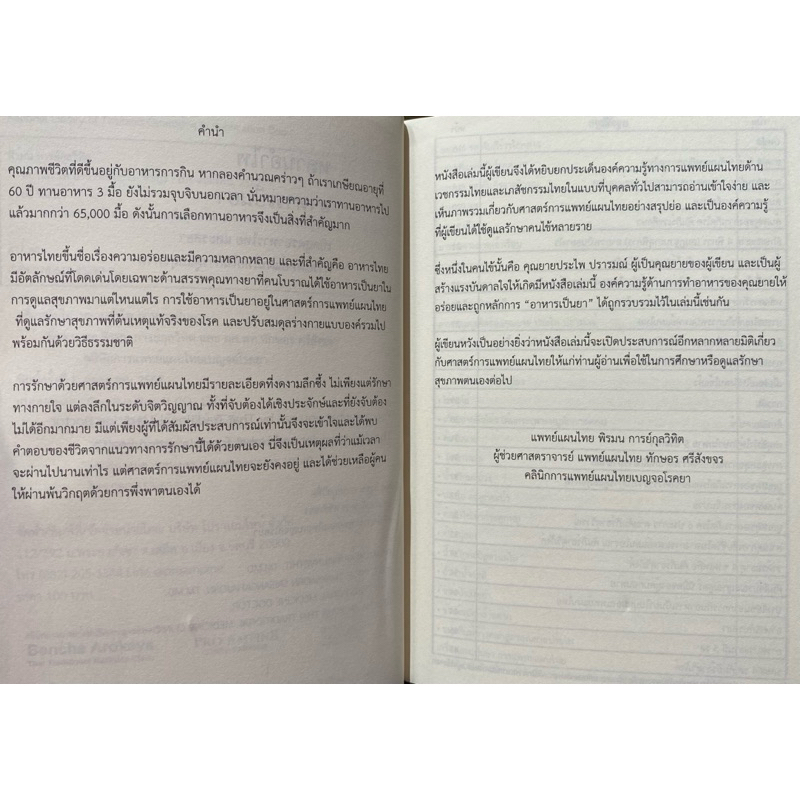 คำนำ
คุณภาพชีวิตที่ดีขึ้นอยู่กับอาหารการกิน หากลองคำนวณคร่าวๆ ถ้าเราเกษียณอายุที่
60 ปี ทานอาหาร 3 มื้อ ยังไม่รวมจุบจิบนอกเวลา นั่นหมายความว่าเราทานอาหารไป
แล้วมากกว่า 65,000 มื้อ ดังนั้นการเลือกทานอาหารจึงเป็นสิ่งที่สำคัญมาก
อาหารไทยขึ้นชื่อเรื่องความอร่อยและมีความหลากหลาย และที่สำคัญคือ อาหารไทย
มีอัตลักษณ์ที่โดดเด่นโดยเฉพาะด้านสรรพคุณทางยาที่คนโบราณได้ใช้อาหารเป็นยาใน
การดูแลสุขภาพมาแต่ไหนแต่ไร การใช้อาหารเป็นยาอยู่ในศาสตร์การแพทย์แผนไทย
ที่ดูแลรักษาสุขภาพที่ต้นเหตุแท้จริงของโรค และปรับสมดุลร่างกายแบบองค์รวมไป
พร้อมกันด้วยวิธีธรรมชาติ
การรักษาด้วยศาสตร์การแพทย์แผนไทยมีรายละเอียดที่งดงามลึกซึ้ง ไม่เพียงแต่รักษา
ทางกายใจ แต่ลงลึกในระดับจิตวิญญาณ ทั้งที่จับต้องได้เชิงประจักษ์และที่ยังจับต้อง
ไม่ได้อีกมากมาย มีแต่เพียงผู้ที่ได้สัมผัสประสบการณ์เท่านั้นจึงจะเข้าใจและได้พบ
คำตอบของชีวิตจากแนวทางการรักษานี้ได้ด้วยตนเอง นี่จึงเป็นเหตุผลที่ว่าแม้เวลา
จะผ่านไปนานเท่าไร แต่ศาสตร์การแพทย์แผนไทยจะยังคงอยู่ และได้ช่วยเหลือผู้คน
ให้ผ่านพ้นวิกฤตด้วยการพึ่งพาตนเองได้
หนังสือเล่มนี้ผู้เขียนจึงได้หยิบยกประเด็นองค์ความรู้ทางการแพทย์แผนไทยด้าน
เวชกรรมไทยและเภสัชกรรมไทยในแบบที่บุคคลทั่วไปสามารถอ่านเข้าใจง่าย และ
เห็นภาพรวมเกี่ยวกับศาสตร์การแพทย์แผนไทยอย่างสรุปย่อ และเป็นองค์ความรู้
ที่ผู้เขียนได้ใช้ดูแลรักษาคนไข้หลายราย
ซึ่งหนึ่งในคนไข้นั้นคือ คุณยายประไพ ปรารมณ์ ผู้เป็นคุณยายของผู้เขียน และเป็นผู้
สร้างแรงบันดาลใจให้เกิดมีหนังสือเล่มนี้ องค์ความรู้ด้านการทำอาหารของคุณยายให้
อร่อยและถูกหลักการ “อาหารเป็นยา” ได้ถูกรวบรวมไว้ในเล่มนี้เช่นกัน
ผู้เขียนหวังเป็นอย่างยิ่งว่าหนังสือเล่มนี้จะเปิดประสบการณ์อีกหลากหลายมิติเกี่ยว
กับศาสตร์การแพทย์แผนไทยให้แก่ท่านผู้อ่านเพื่อใช้ในการศึกษาหรือดูแลรักษา
สุขภาพตนเองต่อไป
แพทย์แผนไทย พิรมน การย์กุลวิทิต
ผู้ช่วยศาสตราจารย์ แพทย์แผนไทย ทักษอร ศรีสังขจร
คลินิกการแพทย์แผนไทยเบญจอโรคยา